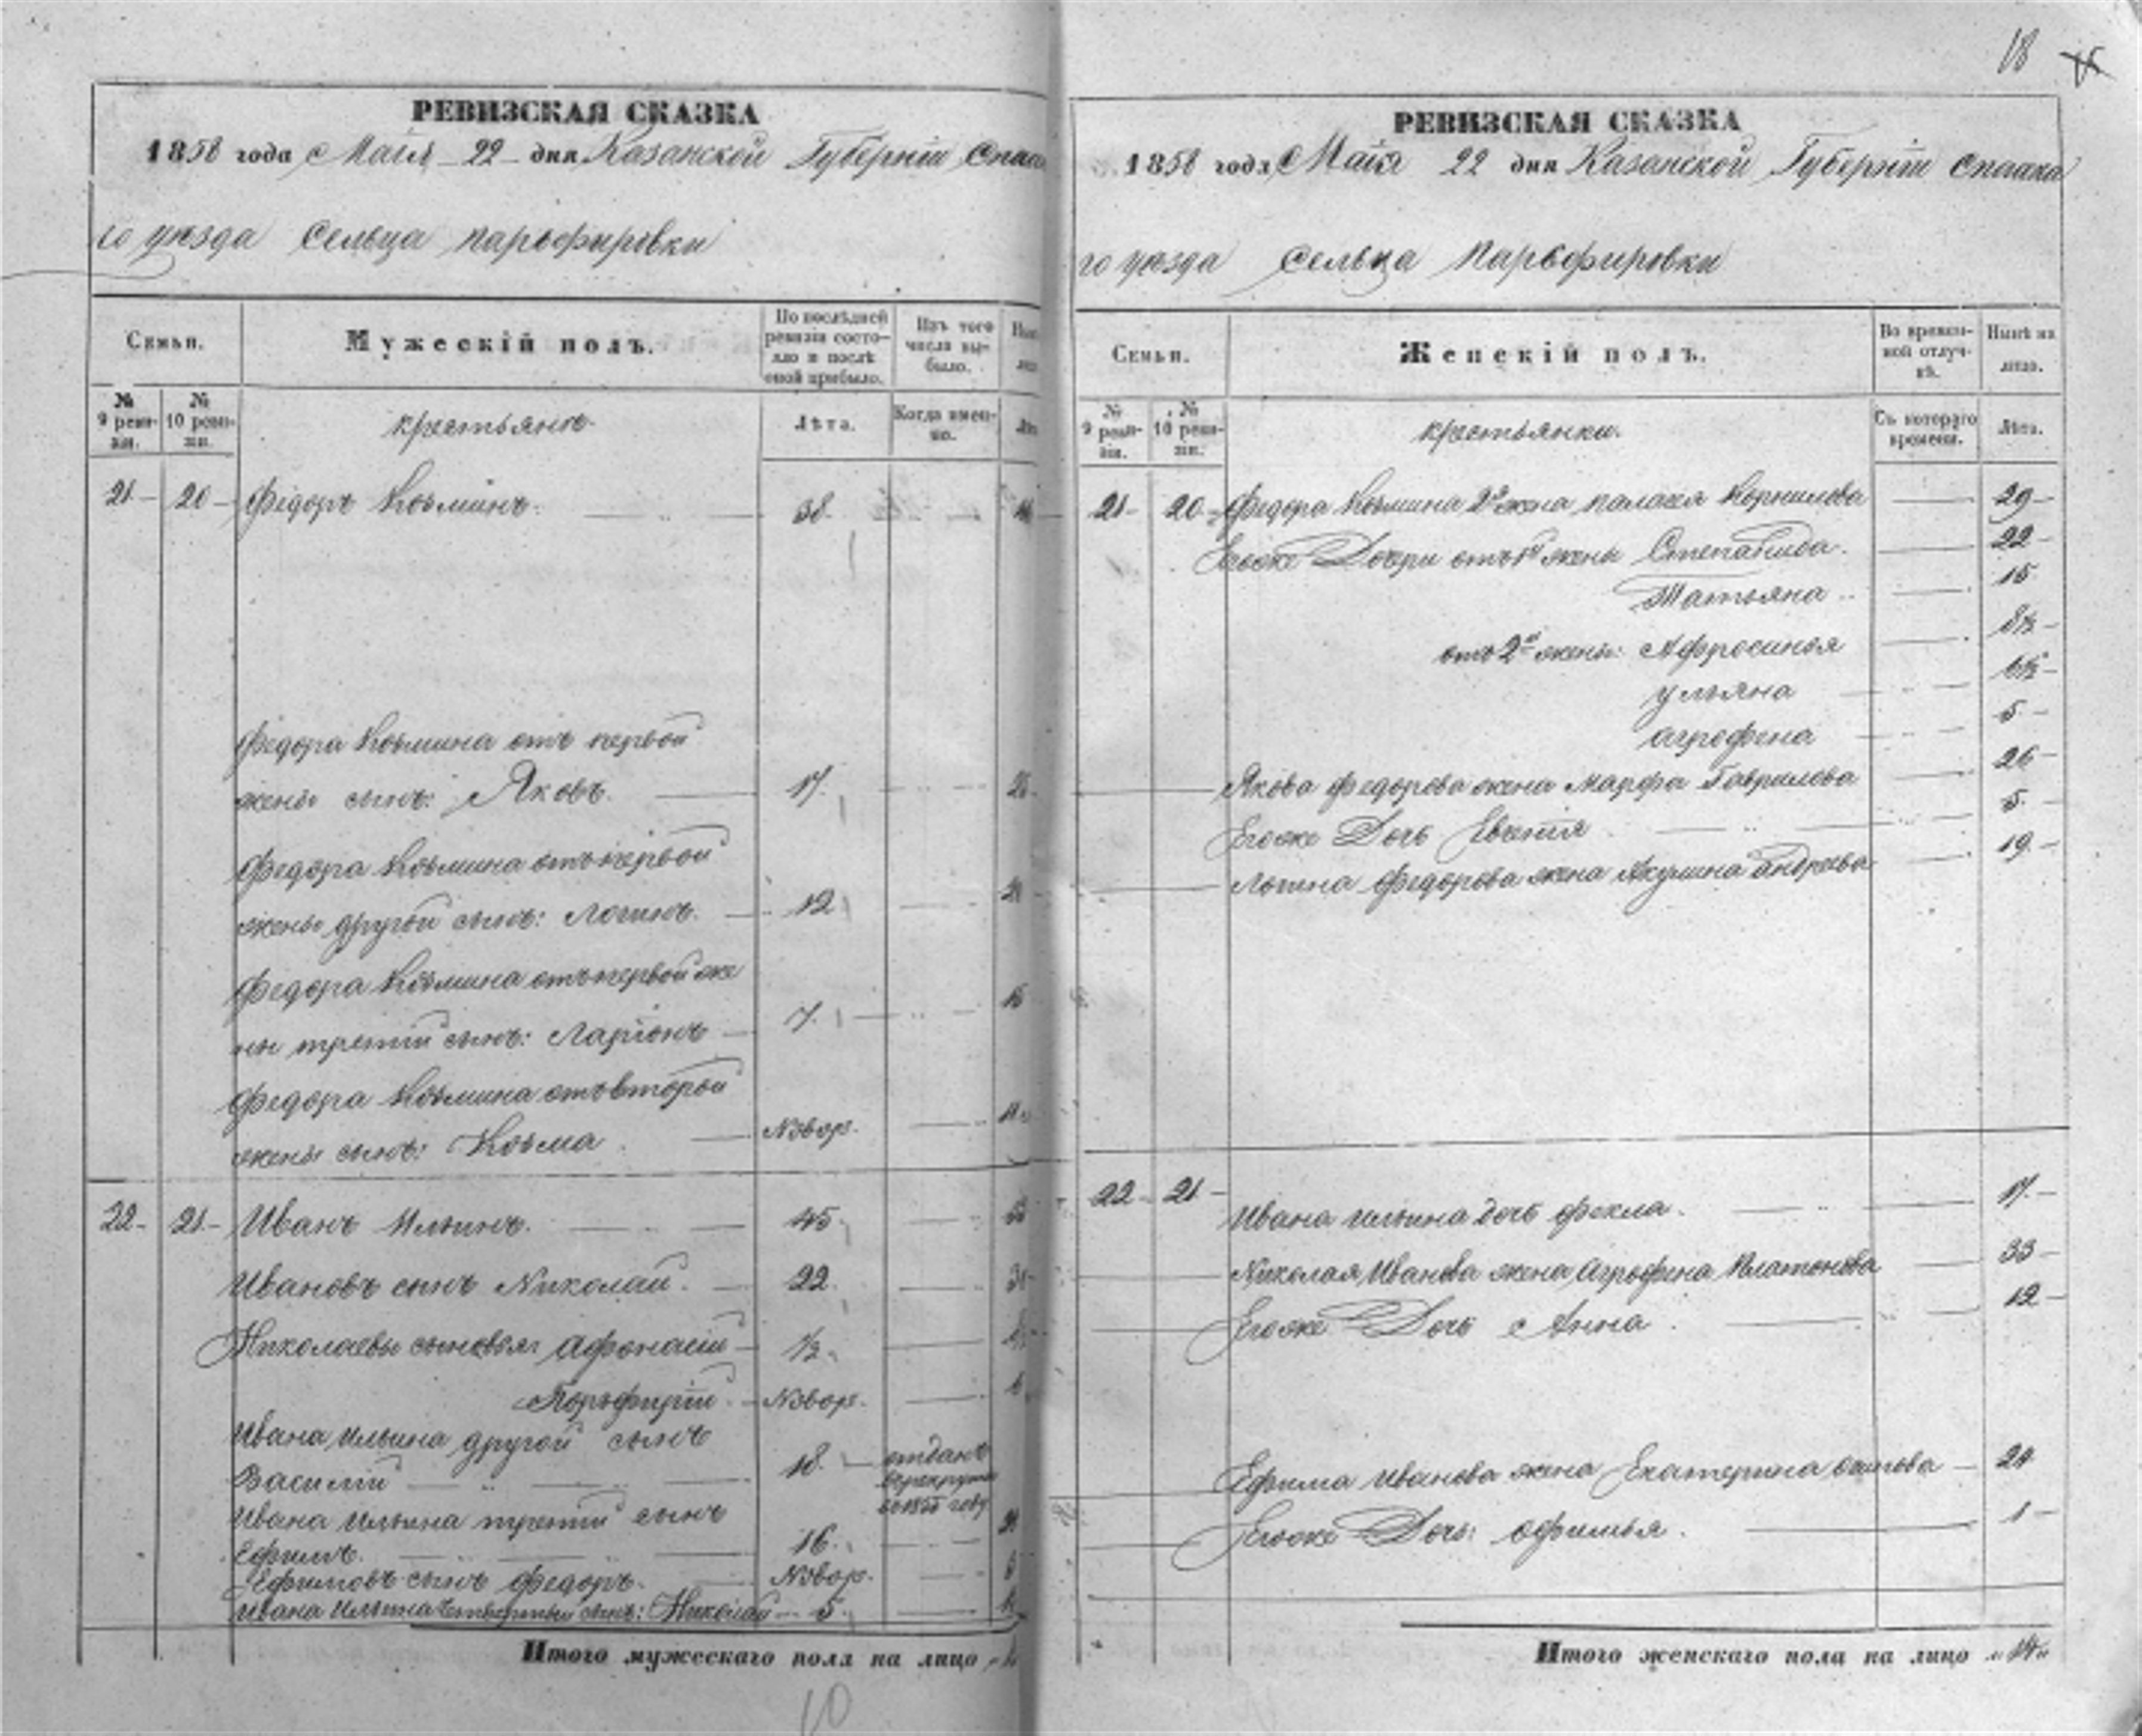 18
РЕВИЗСКАЯ СКАЗКА
1858 года Маія 22 дня Казанской Губерніи Спаска
го уезда сельца парьфировки
Семьи.
Мужескій полъ.
По послѣдней ревизіи состояло и послѣ оной прибыло.
Изъ того числа выбыло.
№ 9 ревизіи.
№ 10 ревизіи.
крестьяне
Лѣта.
Когда именно.
21 20 Федоръ Козьминъ. 38
Федора Козьмина отъ первой
жены сынъ: Яковъ. 17.
Федора Козьмина отъ первой
жены другой сынъ: Логинъ. 12
Федора Козьмина отъ первой же
ны третій сынъ: Ларіонъ 7.
Федора Козьмина отъ второй
жены сынъ: Козьма Новор.
22 21 Иванъ Ильинъ. 45
Ивановъ сынъ Николай. 22
Николаевы сыновья Афонасій 1/2
Порьфирій. Новор.
Ивана Ильина другой сынъ
Василій 18. отданъ в рекруты во 1855 году
Ивана Ильина третій сынъ
Ефимъ. 16.
Ефимовъ сынъ Федоръ. Новор.
Ивана Ильина четвертый сынъ: Николай 5.
Итого мужескаго пола на лицо
10
РЕВИЗСКАЯ СКАЗКА
1858 года Маія 22 дня Казанской Губерніи Спаска
го уезда сельца Парьфировки
Семьи.
Женскій полъ.
Во временной отлучкѣ.
Нынѣ на лицо.
№ 9 ревизіи.
№ 10 ревизіи.
крестьянки.
Съ котораго времени.
Лѣта.
21 20 Федора Козьмина 2я жена палагея Корнилова 29
Егоже Дочери отъ 1й жены Степанида 22
Татьяна 15
отъ 2й жены: Афросинья 8½
ульяна 6½
агрофена 5
Якова Федорова жена Марфа Гаврилова 26
Егоже Дочь Евгенія 5.
Логина Федорова жена Акулина андреева 19
22 21 Ивана Ильина дочь фекла. 17.
Николая Иванова жена Агрофена Платонова 33
Егоже Дочь Анна 12
Ефима Иванова жена Екатерина осипова 24
Егоже Дочь: офимья. 1
Итого женскаго пола на лицо „14„